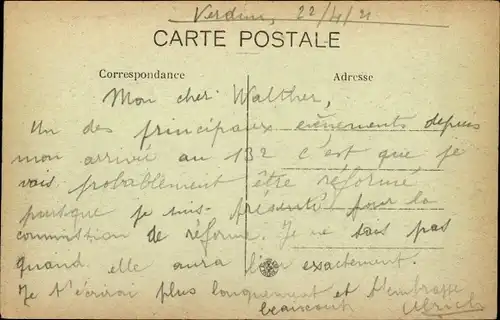 Verdun, 22/4/21
CARTE POSTALE
Correspondance
Adresse
Mon cher Walther,
Un des principaux evènements depuis
mon arrivée au 132 c'est que je
vais probablement être réformé
puisque je suis présenté pour la
commission de réforme. Je ne sais pas
quand elle aura lieu exactement.
Je t'écrirai plus longuement et t'embrasse
beaucoup Ulrich